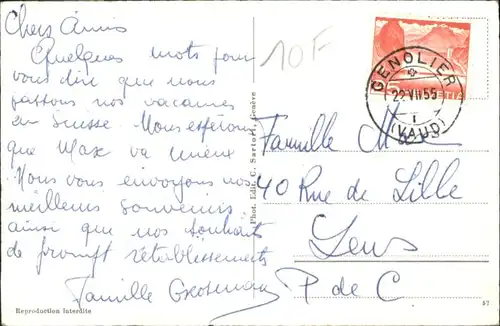 Chers Amis
Quelques mots pour
vous dire que nous
passons nos vacances
en Suisse. Nous espérons
que Max va mieux
Nous vous envoyons nos
meilleurs souvenirs
ainsi que nos souhaits
de prompt rétablissements
Famille
10F
Phot. Edit. C. Sartori, Genève
HELVETIA
GENOLIER
22.VII.55
(VAUD)
Famille
40 Rue de Lille
Lens
P de C
Reproduction Interdite
57